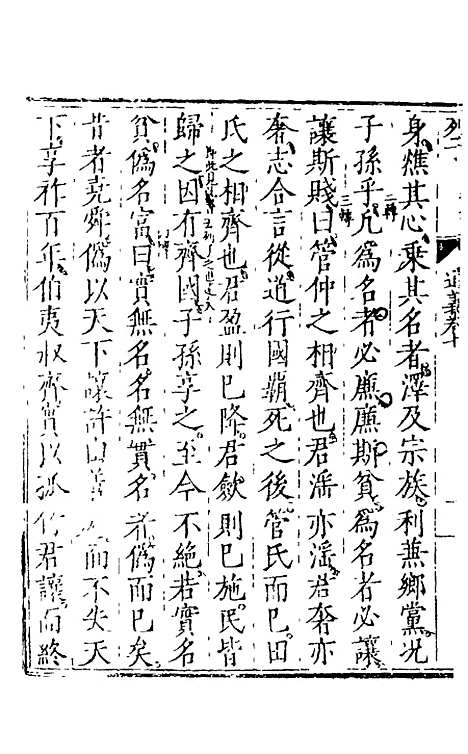 身燋其心乘其名者澤及宗族利兼鄉黨况
子孫乎凡為名者必廉廉斯貧為名者必讓
讓斯賤曰管仲之相齊也君滛亦滛君奢亦
奢志合言從道行國覇死之後管氏而已田
氏之相齊也君盈則已降君歛則已施民皆
歸之因有齊國子孫享之至今不絕若實名
貧偽名富曰實無名名無實名者偽而已矣
昔者堯舜偽以天下讓許由善 而不失天
下享祚百年伯夷叔齊實以孤竹君讓而終